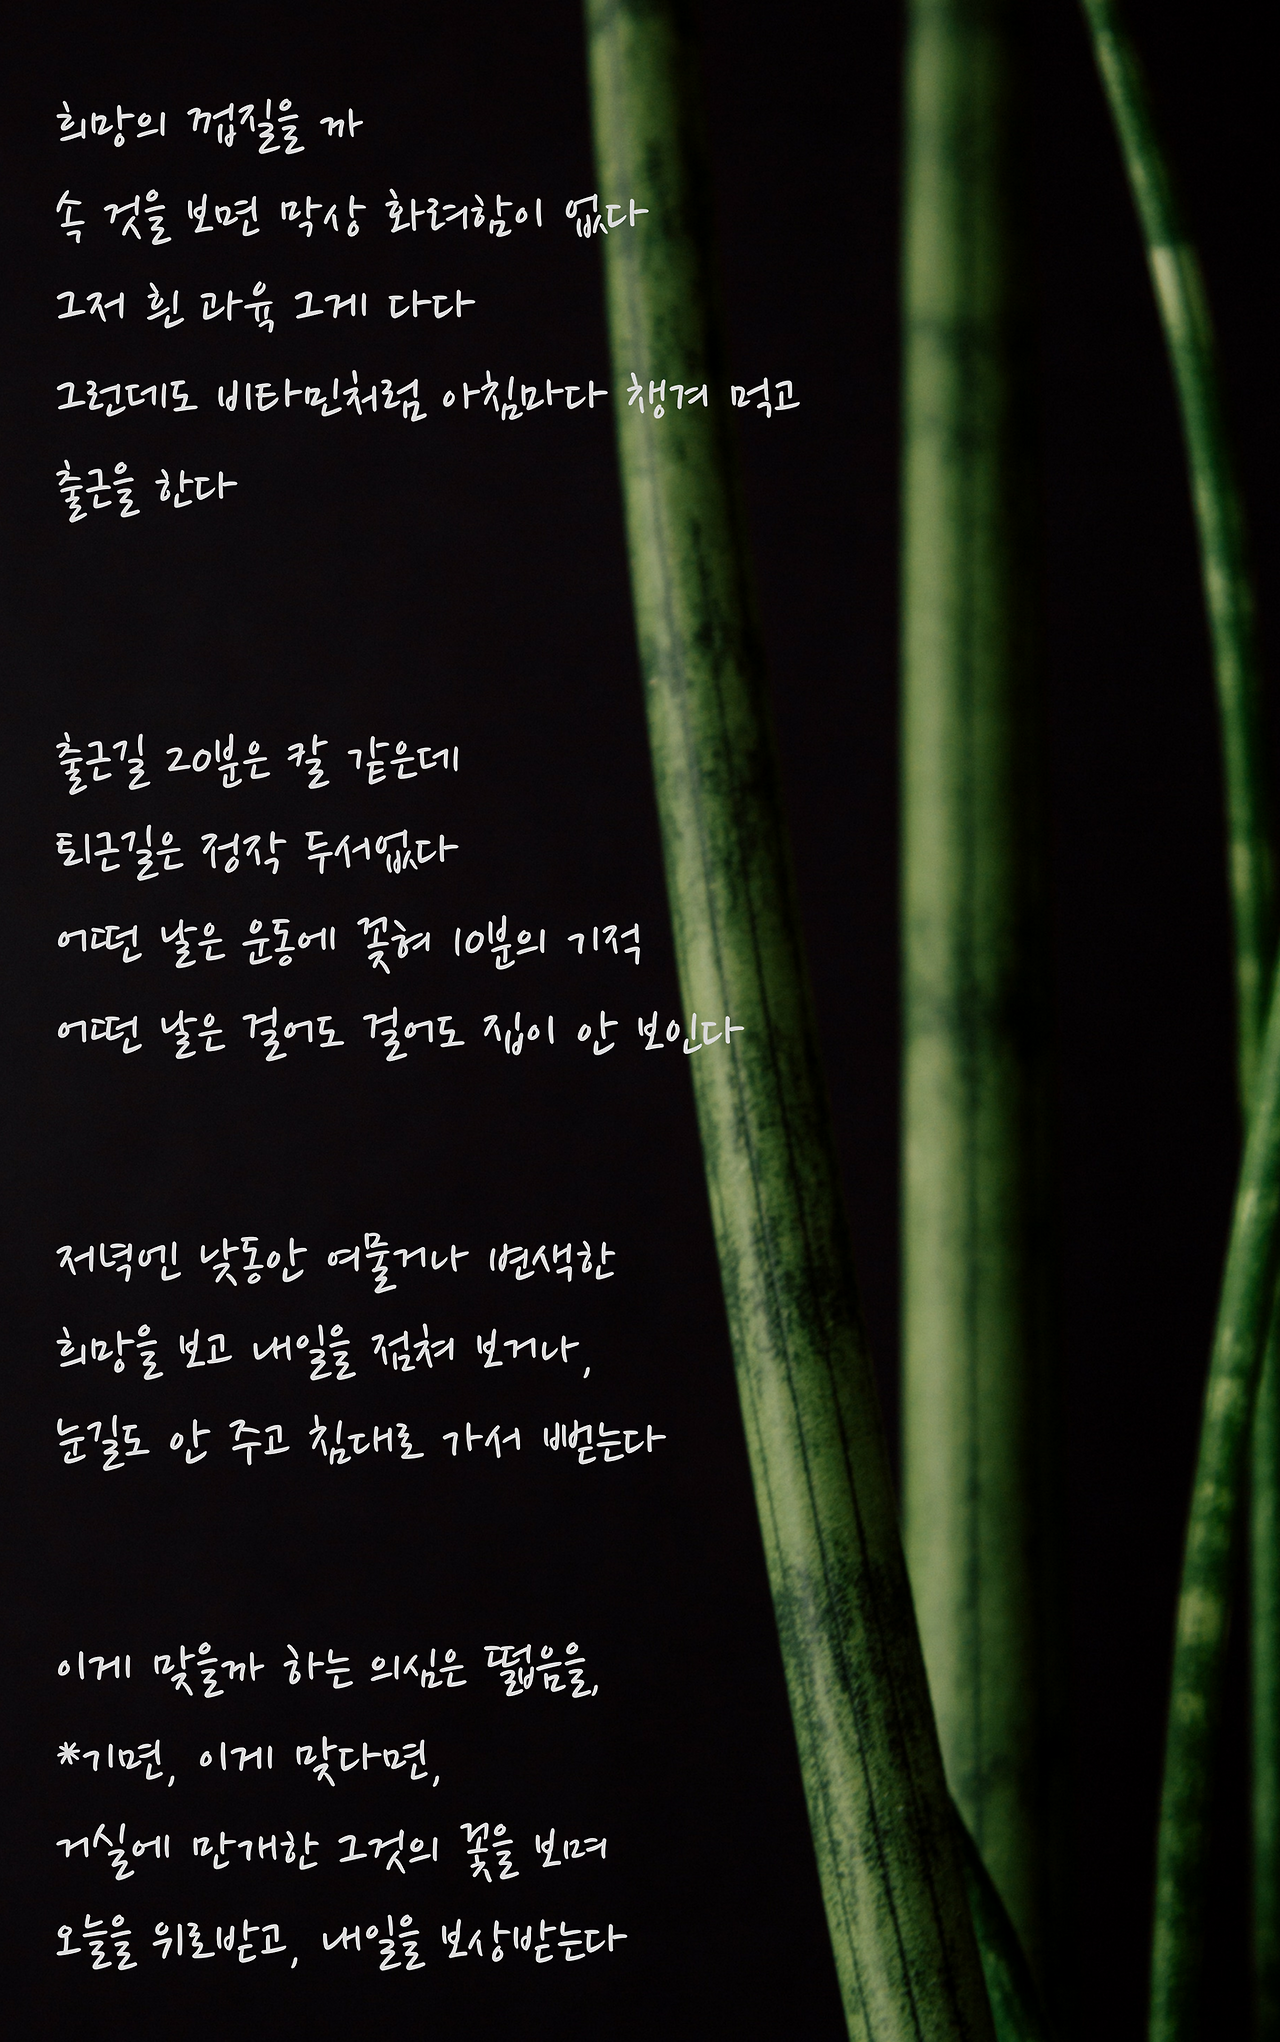 희망의 껍질을 까
속 것을 보면 막상 화려함이 없다
그저 흰 과육 그게 다다
그런데도 비타민처럼 아침마다 챙겨 먹고
출근을 한다
출근길 20분은 칼 같은데
퇴근길은 정작 두서없다
어떤 날은 운동에 꽂혀 10분의 기적
어떤 날은 걸어도 걸어도 집이 안 보인다
저녁엔 낮동안 여물거나 변색한
희망을 보고 내일을 점쳐 보거나,
눈길도 안 주고 침대로 가서 뻗는다
이게 맞을까 하는 의심은 떫음을,
*기면, 이게 맞다면,
거실에 만개한 그것의 꽃을 보며
오늘을 위로받고, 내일을 보상받는다